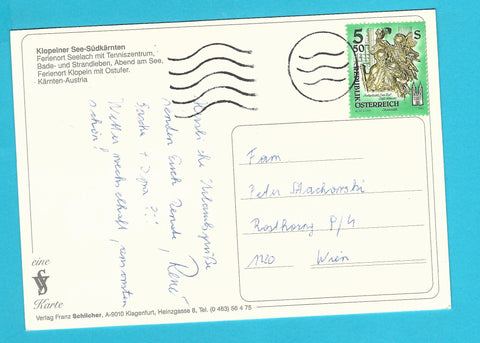 Klopeiner See-Südkärnten
Ferienort Seelach mit Tenniszentrum,
Bade- und Strandleben, Abend am See,
Ferienort Klopein mit Ostufer.
Kärnten-Austria
5 50 S
REPUBLIK
ÖSTERREICH
Herzliche Urlaubsgrüße
senden Euch Renate, René
Wetter wechselhaft, ansonsten
schön!
Fam
Peter
P/4
1120 Wien
eine
Karte
Verlag Franz Schilcher, A-9010 Klagenfurt, Heinzgasse 8, Tel. (0 463) 56 4 75